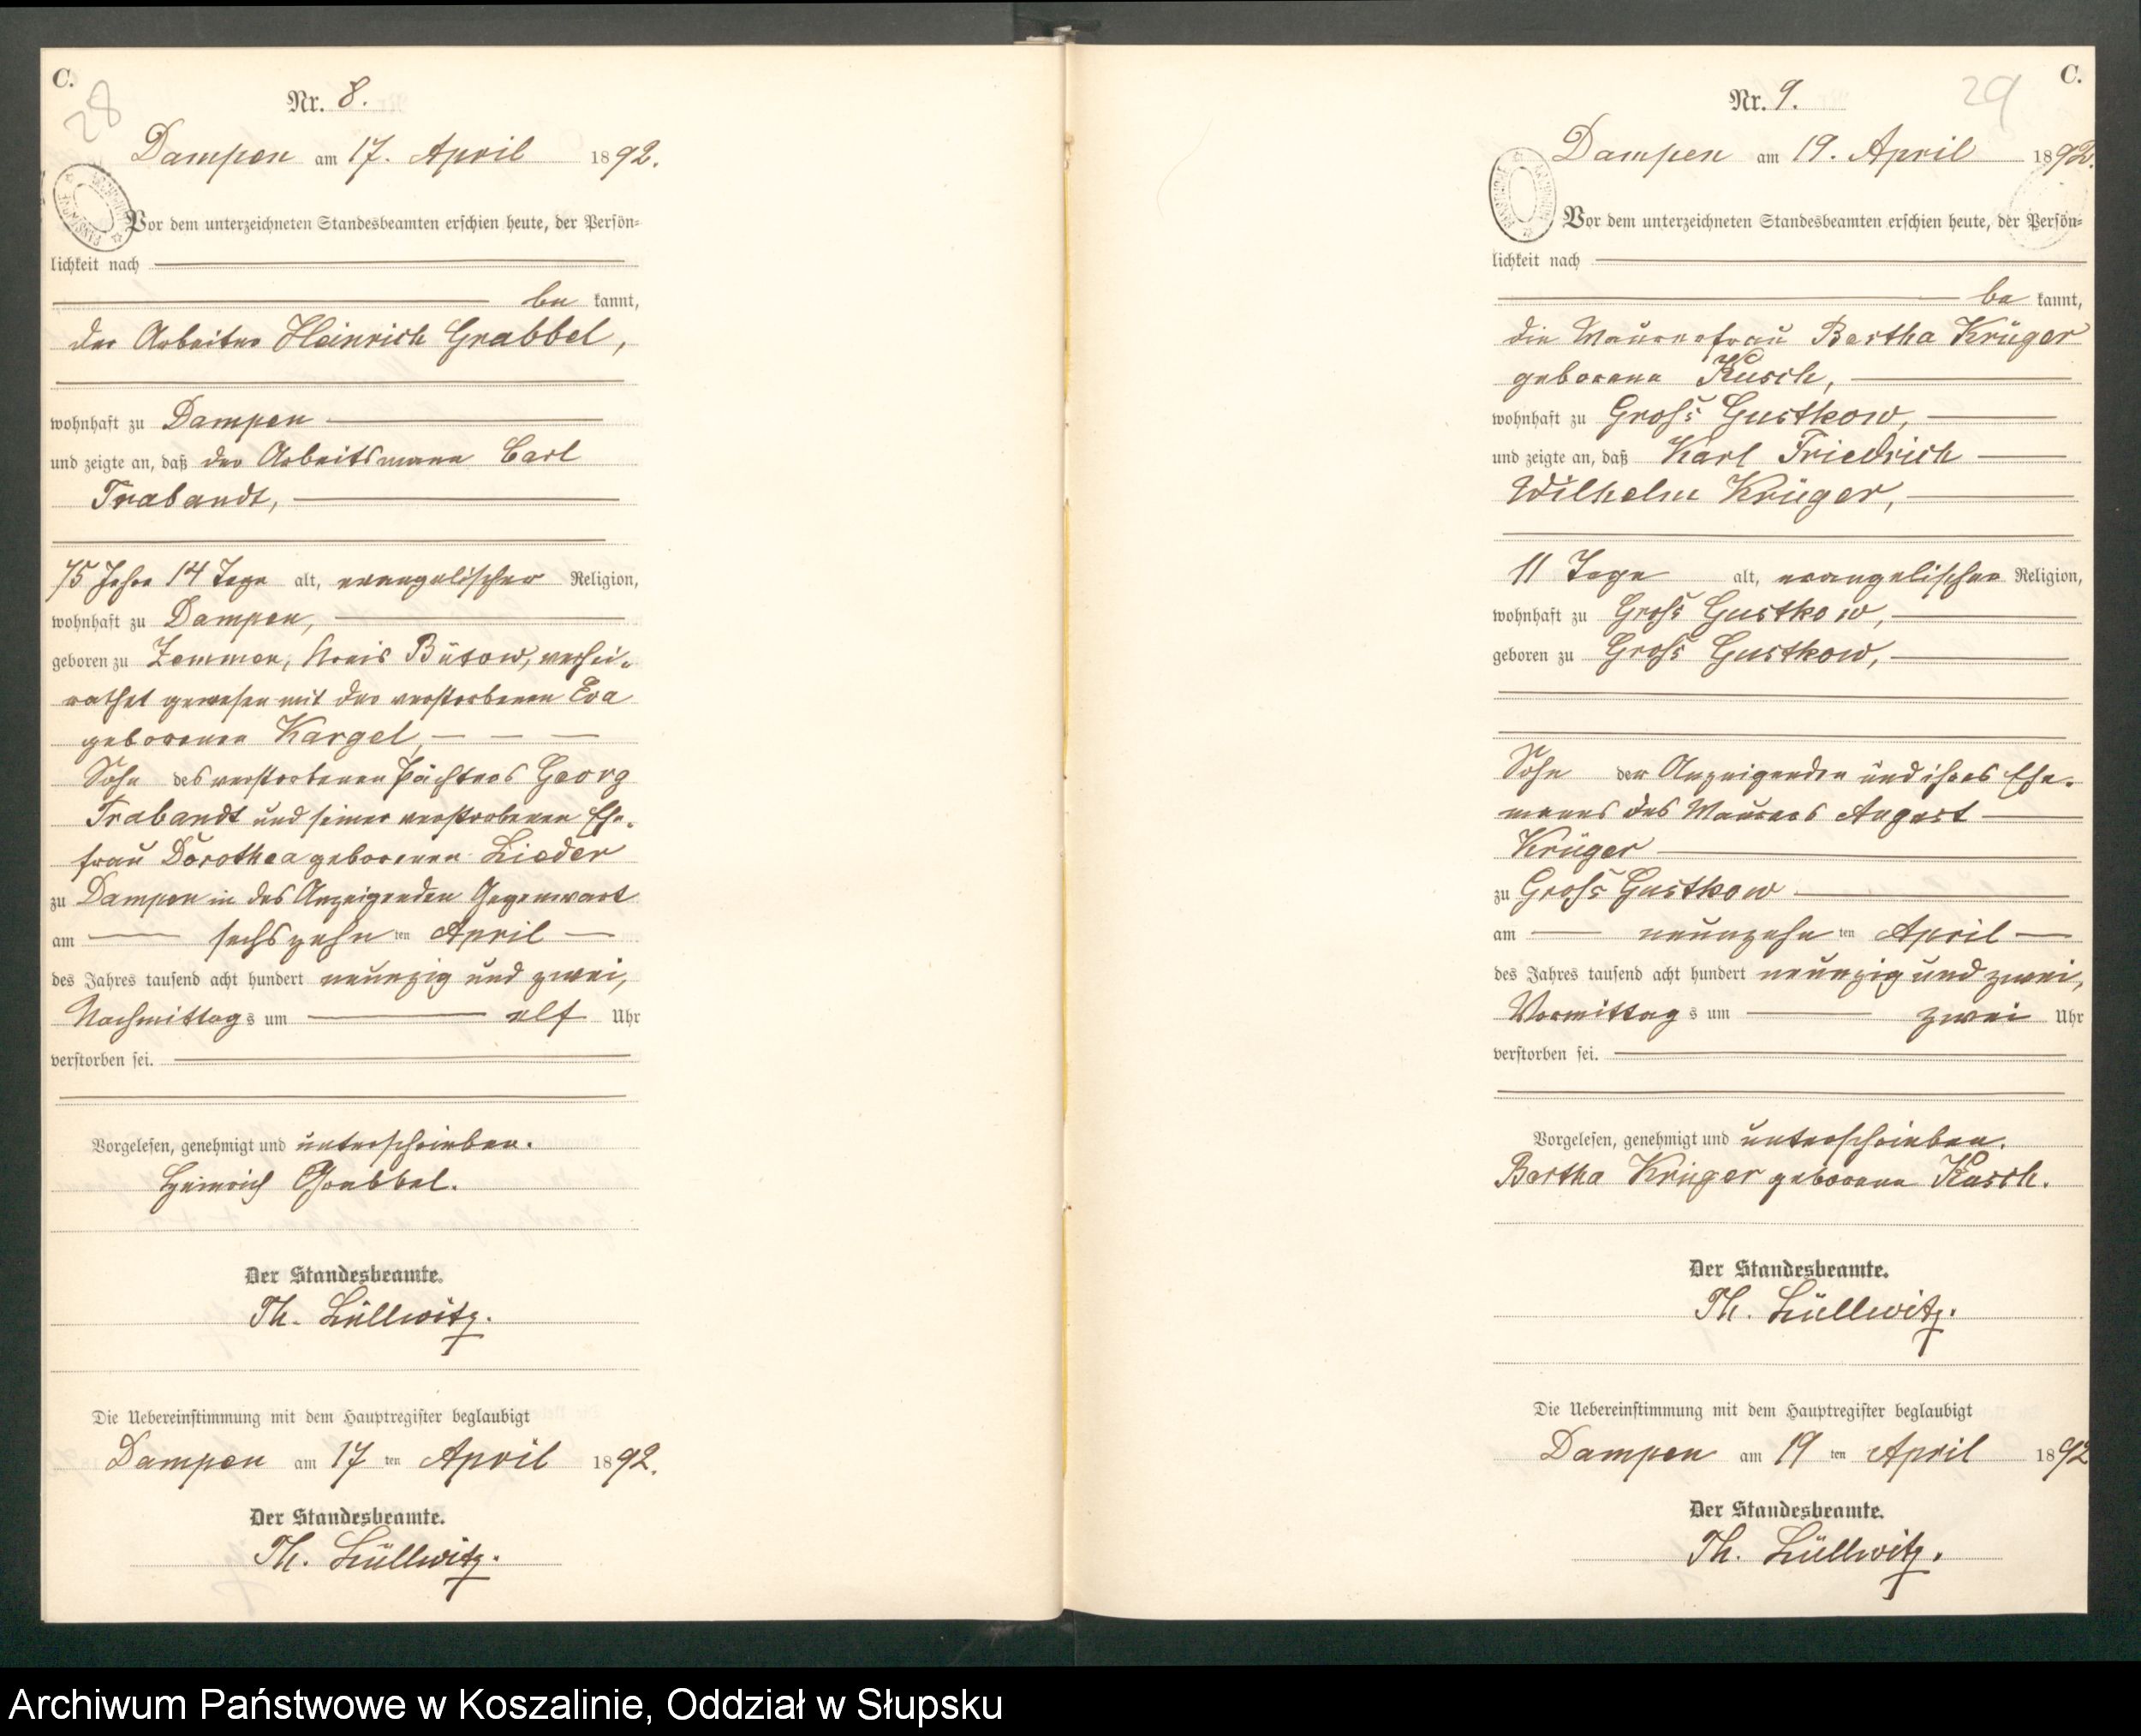 C.
28
Nr. 8.
Dampen am 17. April 1892.
Vor dem unterzeichneten Standesbeamten erschien heute, der Persön-
lichkeit nach
be kannt,
der Arbeiter Heinrich Grabbel,
wohnhaft zu Dampen
und zeigte an, daß der Arbeitsmann Carl
Trabandt,
75 Jahre 14 Tage alt, evangelischer Religion,
wohnhaft zu Dampen,
geboren zu Zemmen, Kreis Bütow, verhei-
rathet gewesen mit der verstorbenen Eva
geborenen Kargel,
Sohn des verstorbenen Pächters Georg
Trabandt und seiner verstorbenen Ehe-
frau Dorothea geborenen Lieder
zu Dampen in des Anzeigenden Gegenwart
am sechszehn ten April
des Jahres tausend acht hundert neunzig und zwei,
Nachmittag s um elf Uhr
verstorben sei.
Vorgelesen, genehmigt und unterschrieben.
Heinrich Grabbel.
Der Standesbeamte.
Th. Lüllwitz.
Die Uebereinstimmung mit dem Hauptregister beglaubigt
Dampen am 17 ten April 1892.
Der Standesbeamte.
Th. Lüllwitz.
C.
29
Nr. 9.
Dampen am 19. April 1892.
Vor dem unterzeichneten Standesbeamten erschien heute, der Persön-
lichkeit nach
be kannt,
die Maurerfrau Bertha Krüger
geborene Kusch,
wohnhaft zu Groß Gustkow,
und zeigte an, daß Karl Friedrich
Wilhelm Krüger,
11 Tage alt, evangelischer Religion,
wohnhaft zu Groß Gustkow,
geboren zu Groß Gustkow,
Sohn der Anzeigenden und ihres Ehe-
mannes des Maurers August
Krüger
zu Groß Gustkow
am neunzehn ten April
des Jahres tausend acht hundert neunzig und zwei,
Vormittag s um zwei Uhr
verstorben sei.
Vorgelesen, genehmigt und unterschrieben.
Bertha Krüger geborene Kusch.
Der Standesbeamte.
Th. Lüllwitz.
Die Uebereinstimmung mit dem Hauptregister beglaubigt
Dampen am 19 ten April 1892
Der Standesbeamte.
Th. Lüllwitz.
Archiwum Państwowe w Koszalinie, Oddział w Słupsku